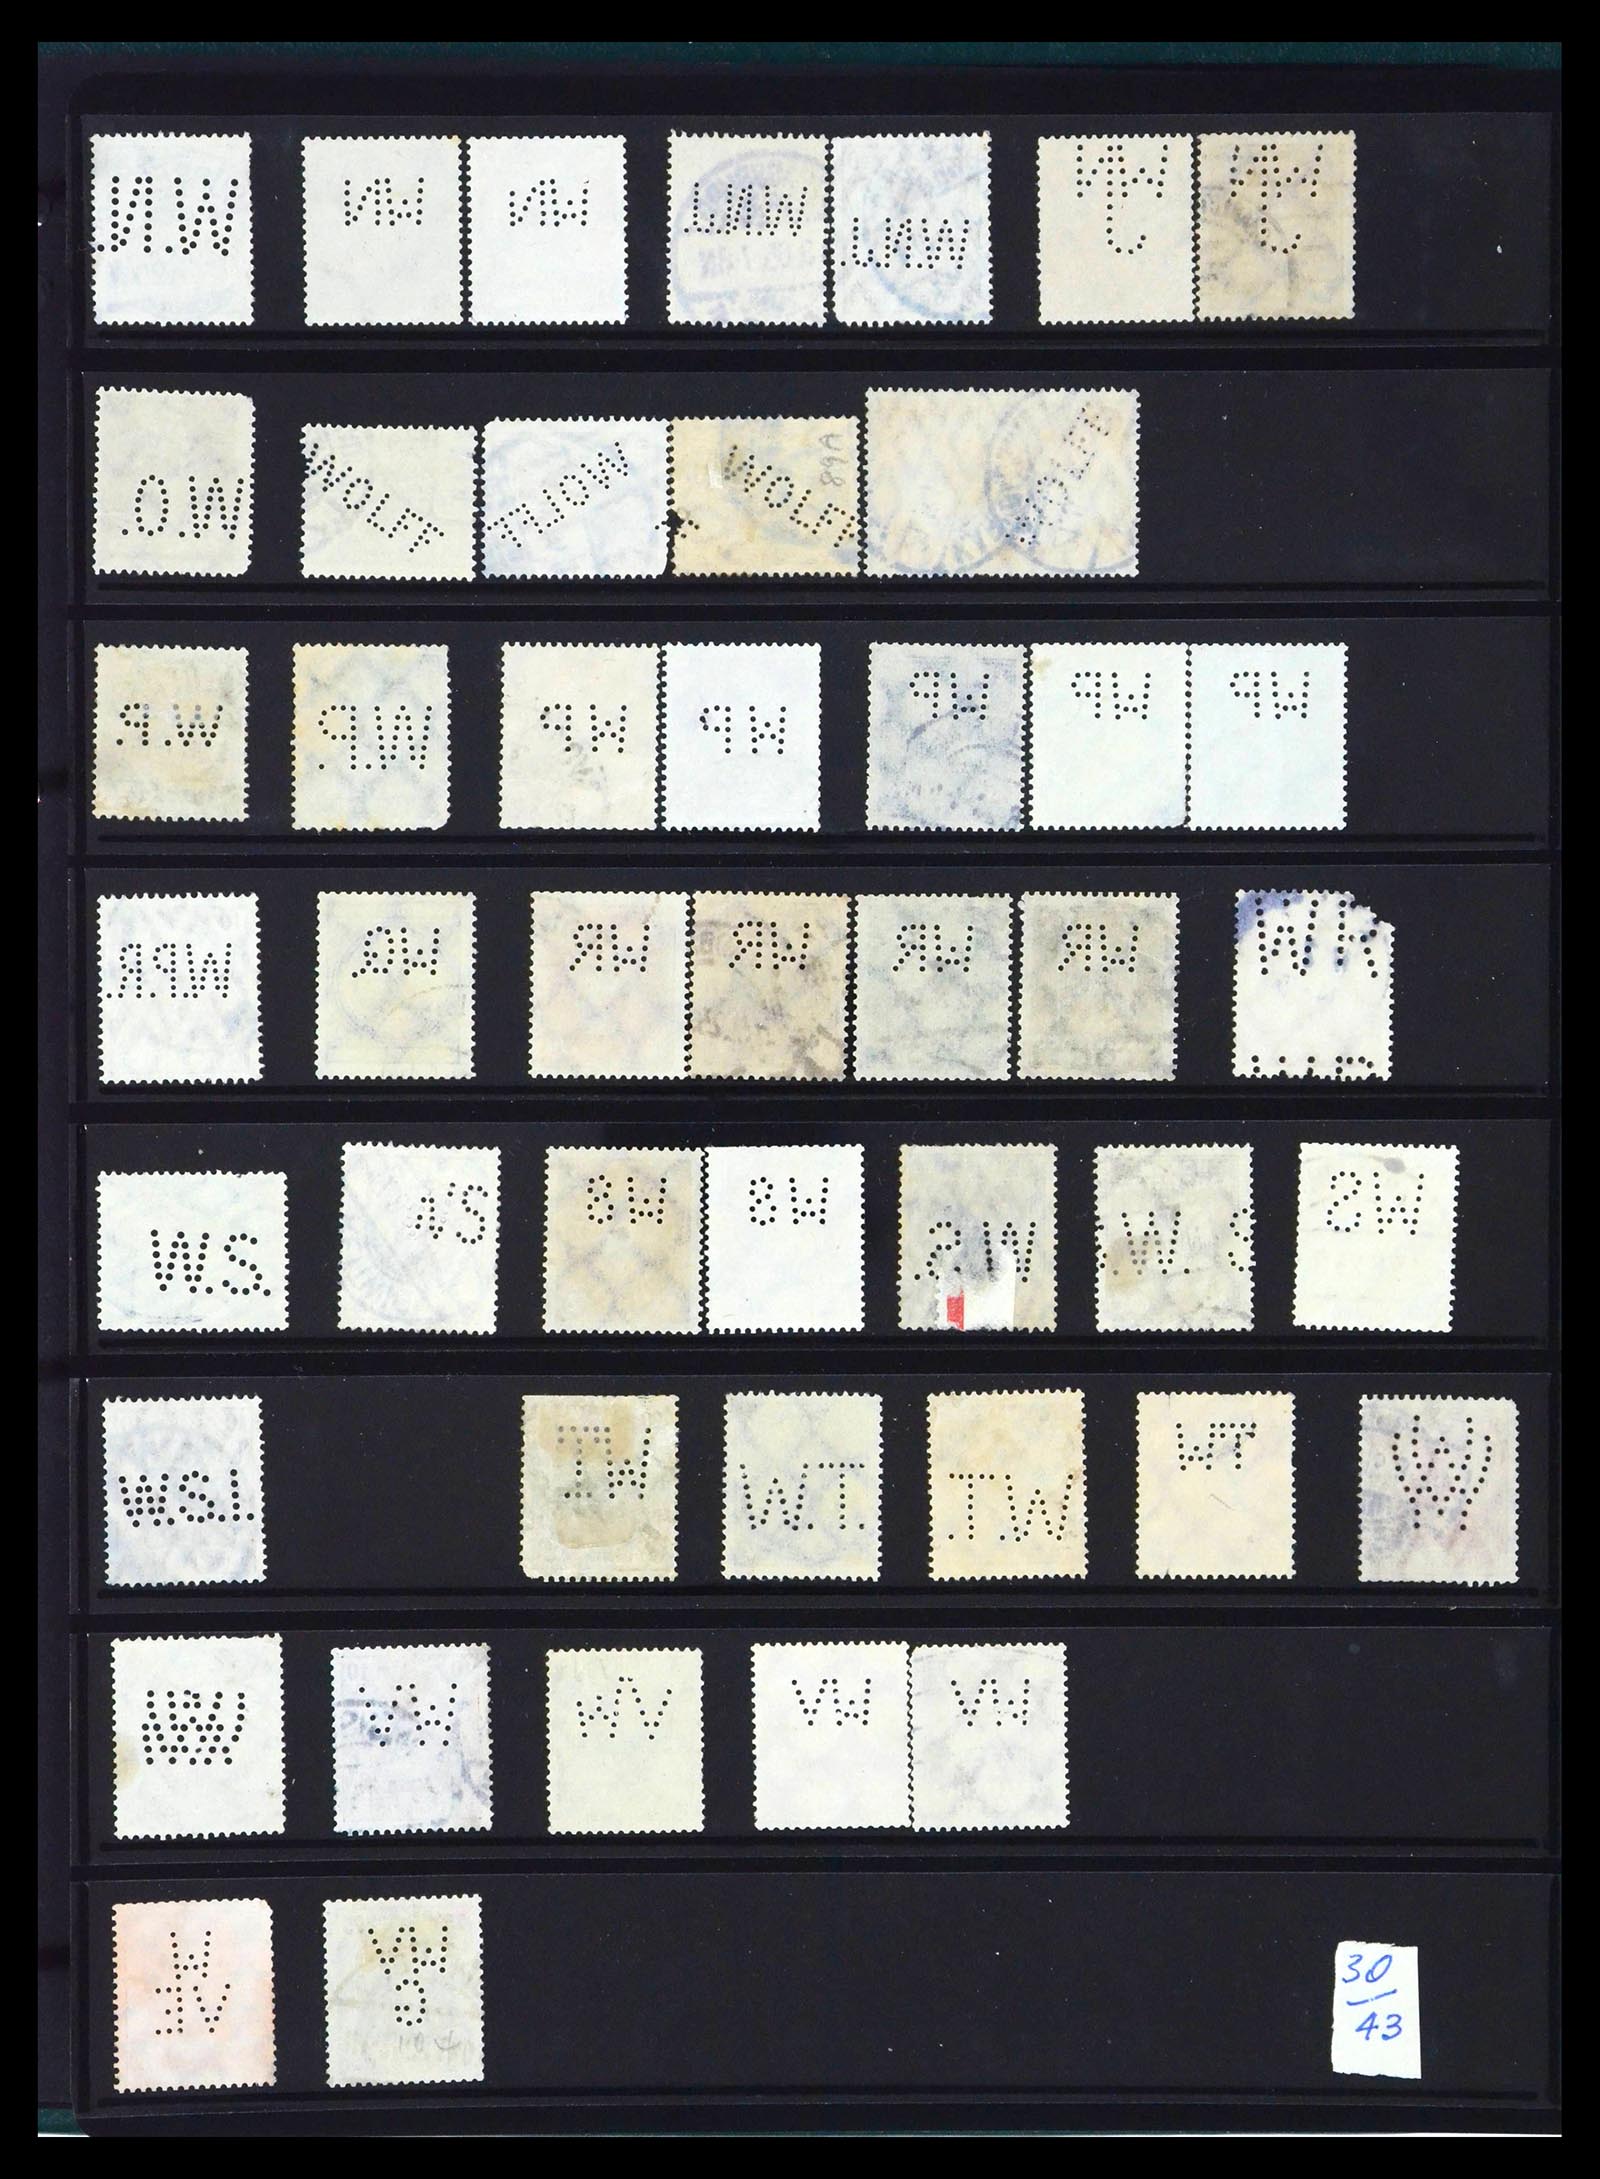 W.N. WN WN W.N.J. W.N.J. WN J WN J
W.O. WOLFF WOLFF WOLFF A98 WOLFF
W.P. W.P. WP WP WP WP WP
W.P.R. WR WR WR WR WR
W.S. W8 W8 W.S. .W.S WS
W.S.I. WT W.T. W.T. WT
VW VW VW VW
W VE VW G
30
43